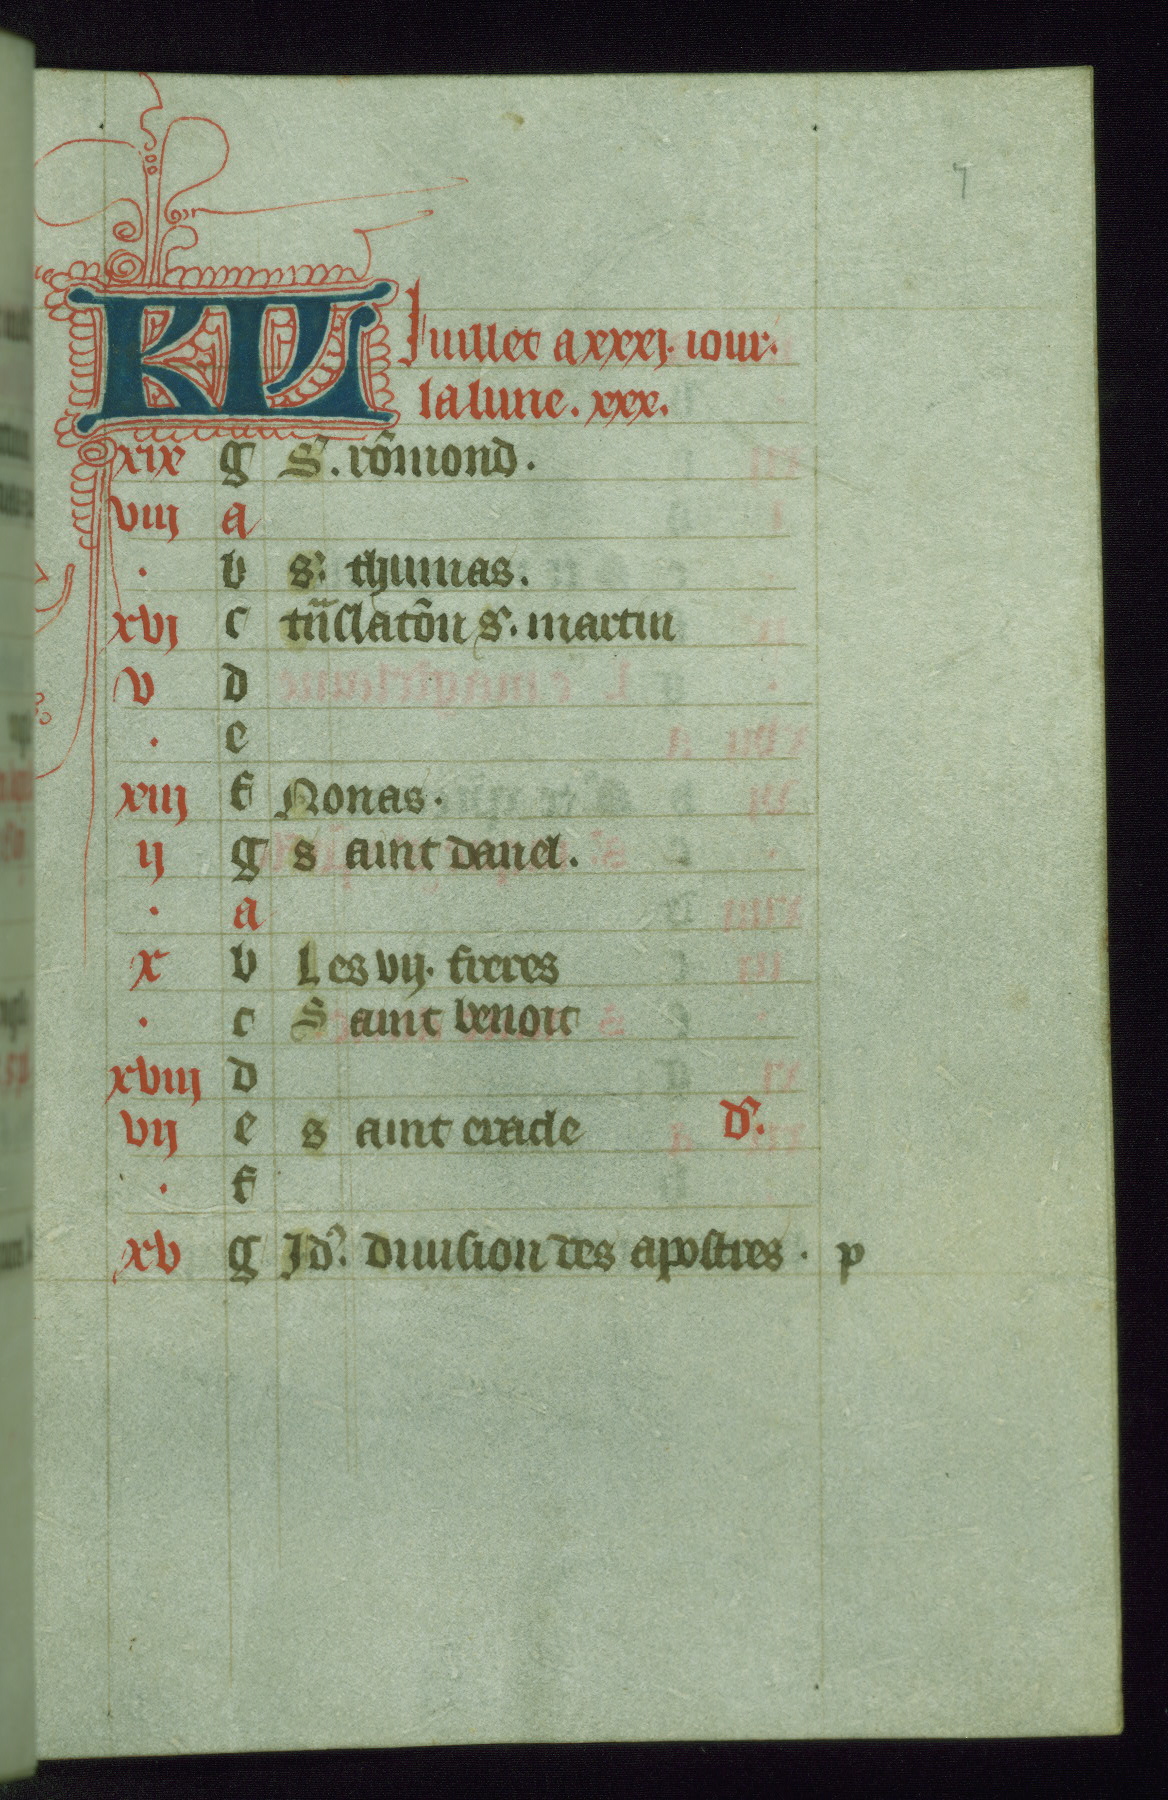 7
KL Juillet a xxxj. iour.
la lune. xxx.
xix g S. rõmond.
viij a
. b s. thumas.
xvj c tñslatõn s. martin
v d
. e
xiij f Nonas.
ij g saint daniel.
. a
x b Les vij. freres
. c Saint benoit
xviij d
vij e saint eracle d.
. f
xv g Jd. diuision des apostres. p